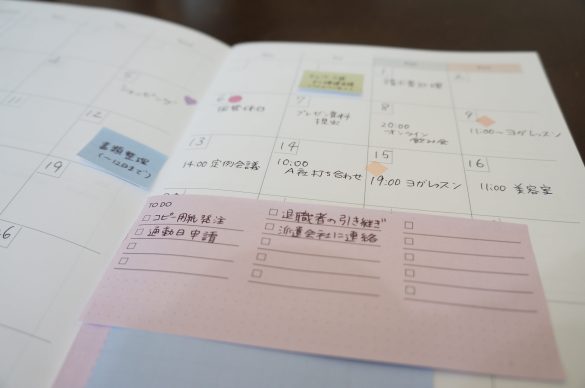 5
ショッピング
11
12
書類整理
(〜12日まで)
19
1
2
6
7
プレゼン資料
提出
8
20:00
オンライン
飲み会
9
11:00〜ヨガレッスン
13
14:00 定例会議
14
10:00
A社打ち合わせ
15
19:00 ヨガレッスン
16
11:00 美容室
TO DO
コピー用紙発注
通勤日申請
退職者の引き継ぎ
派遣会社に連絡